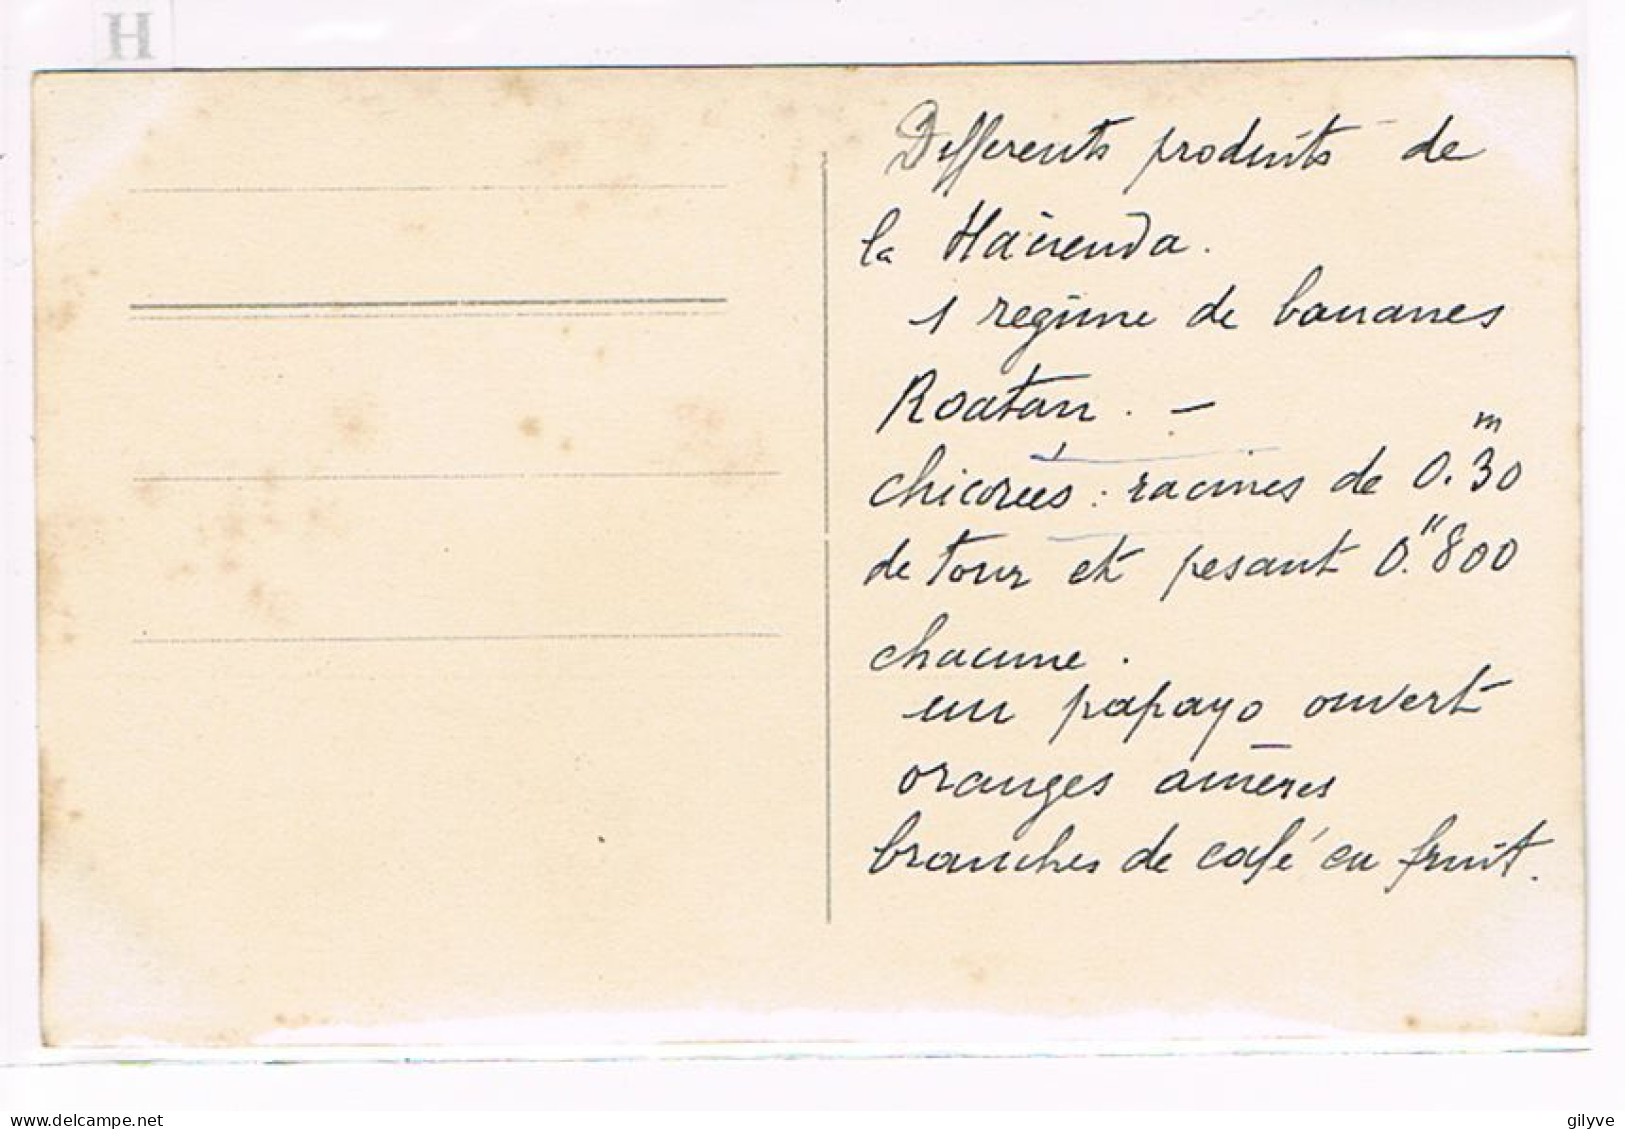 H
Differents produits de
la Hacienda.
1 regime de bananes
Roatan. -
chicorées : racines de 0.m30
de tour et pesant 0."800
chacune.
un papayo ouvert
oranges amères
branches de café en fruit.
delcampe.net
gilyve